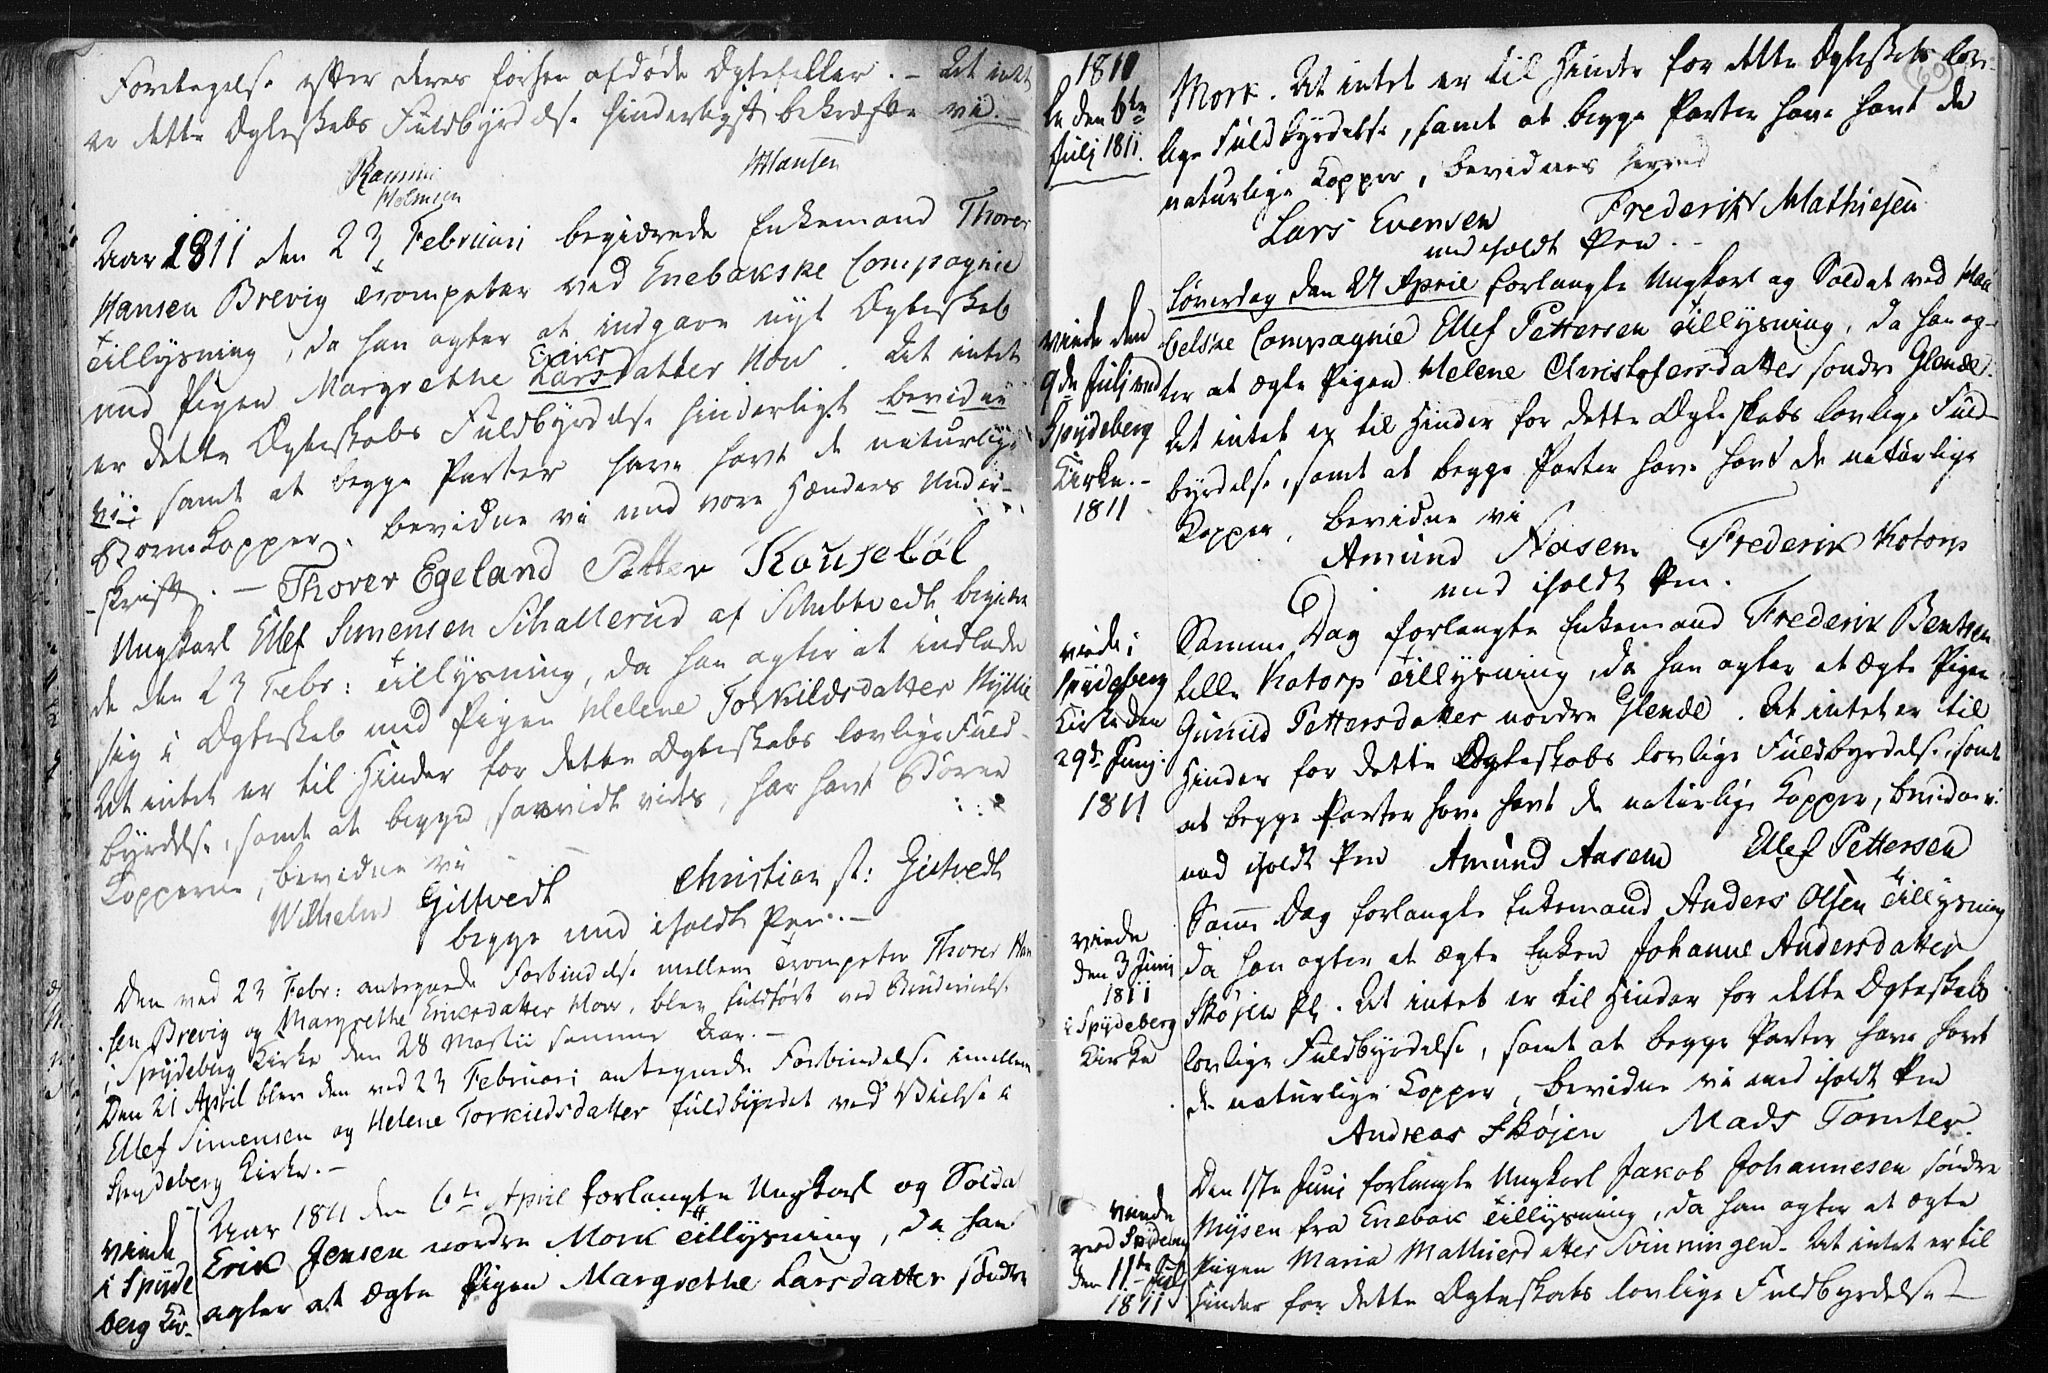 Foretagelse efter deres forhen afdøde Ægtefæller. – At intet
er dette Ægteskabs Fuldbyrdelse hinderligt bekræfte vi. –
Hansen
Aar 1811 den 23 Februari begierede Enkemand Thorer
Hansen Brevig Trompeter ved Enebakske Compagnie
Tillysning, da han agter at indgaae nyt Ægteskab
med Pigen Margrethe Lars Eriks datter How. At intet
er dette Ægteskabs Fuldbyrdelse hinderligt bevidne
vi; samt at begge Parter have havt de naturlige
Børnekopper, bevidne vi med vore Hænders Under-
-skrift. – Thorer Egeland Petter Kouseböl
Ungkarl Ellef Simensen Schallerud af Schibtvedt begiere
de den 23 Febr: Tillysning, da han agter at indlade
sig i Ægteskab med Pigen Helene Torkildsdatter Hyllie
At intet er til Hinder for dette Ægteskabs lovlige Fuld-
byrdelse, samt at begge, saavidt vides, har havt Børne
Kopperne, bevidne vi
Wilhelm Giltvedt Christian st: Giltvedt
begge med iholdt Pen. –
Den ved 23 Febr: antegnede Forbindelse mellem Trompeter Thorer Han
sen Brevig og Margrethe Eriksdatter How, blev fuldført ved
i Spydeberg Kirke den 28 Martii samme Aar. –
Den 21 April blev den ved 23 Februari antegnede Forbindelse imellem
Ellef Simensen og Helene Torkildsdatter fuldbyrdet ved Vielse i
Spydeberg Kirke. –
viede
i Spyde
berg Kir-
Aar 1811 den 6te April forlangte Ungkarl og Solda
Erik Jensen nordre Mork Tillysning, da han
agter at ægte Pigen Margrethe Larsdatter søndre
1811
ke den 6te
Julj 1811.
Mork. At intet er til Hinder for dette Ægteskabs lov-
lige Fuldbyrdelse, samt at begge Parter have havt de
naturlige Kopper, bevidnes herved
Lars Evensen Frederik Mathiesen
med iholdt Pen. –
viede den
9de Julj ved
Spydeberg
Kirke. –
1811
Løverdag den 27 April forlangte Ungkarl og Soldat ved
Compagnie Ellef Pettersen Tillysning, da han ag-
ter at ægte Pigen Helene Christofersdatter søndre Glende.
At intet er til Hinder for dette Ægteskabs lovlige Fuld-
byrdelse, samt at begge Parter have havt de naturlige
Kopper, bevidne vi
Amund Aasem Frederik Kotorp
med iholdt Pen.
viede i
Spydeberg
Kirke den
29de Junj
1811
Samme Dag forlangte Enkemand Frederik Bentsen
lille Kotorp Tillysning, da han agter at ægte Pigen
Gunild Pettersdatter nordre Glende. At intet er til
Hinder for dette Ægteskabs lovlige Fuldbyrdelse, samt
at begge Parter have havt de naturlige Kopper, bevidne vi
med iholdt Pen Amund Aasem Ellef Pettersen
viede
den 3 Junj
1811
i Spydeberg
Kirke
Samme Dag forlangte Enkemand Anders Olsen Tillysning
da han agter at ægte Enken Johanne Andersdatter
Skøjen Pl. At intet er til Hinder for dette Ægteskabs
lovlige Fuldbyrdelse, samt at begge Parter have havt
de naturlige Kopper, bevidne vi med iholdt Pen
Andreas Skøjen Mads Tomter
viede
ved Spydeberg
den 11te Julj
1811
Den 1ste Junj forlangte Ungkarl Jakob Johannesen søndre
Mysen fra Enebak Tillysning, da han agter at ægte
Pigen Maria Mathiesdatter Svinningen. At intet er til
Hinder for dette Ægteskabs lovlige Fuldbyrdelse –